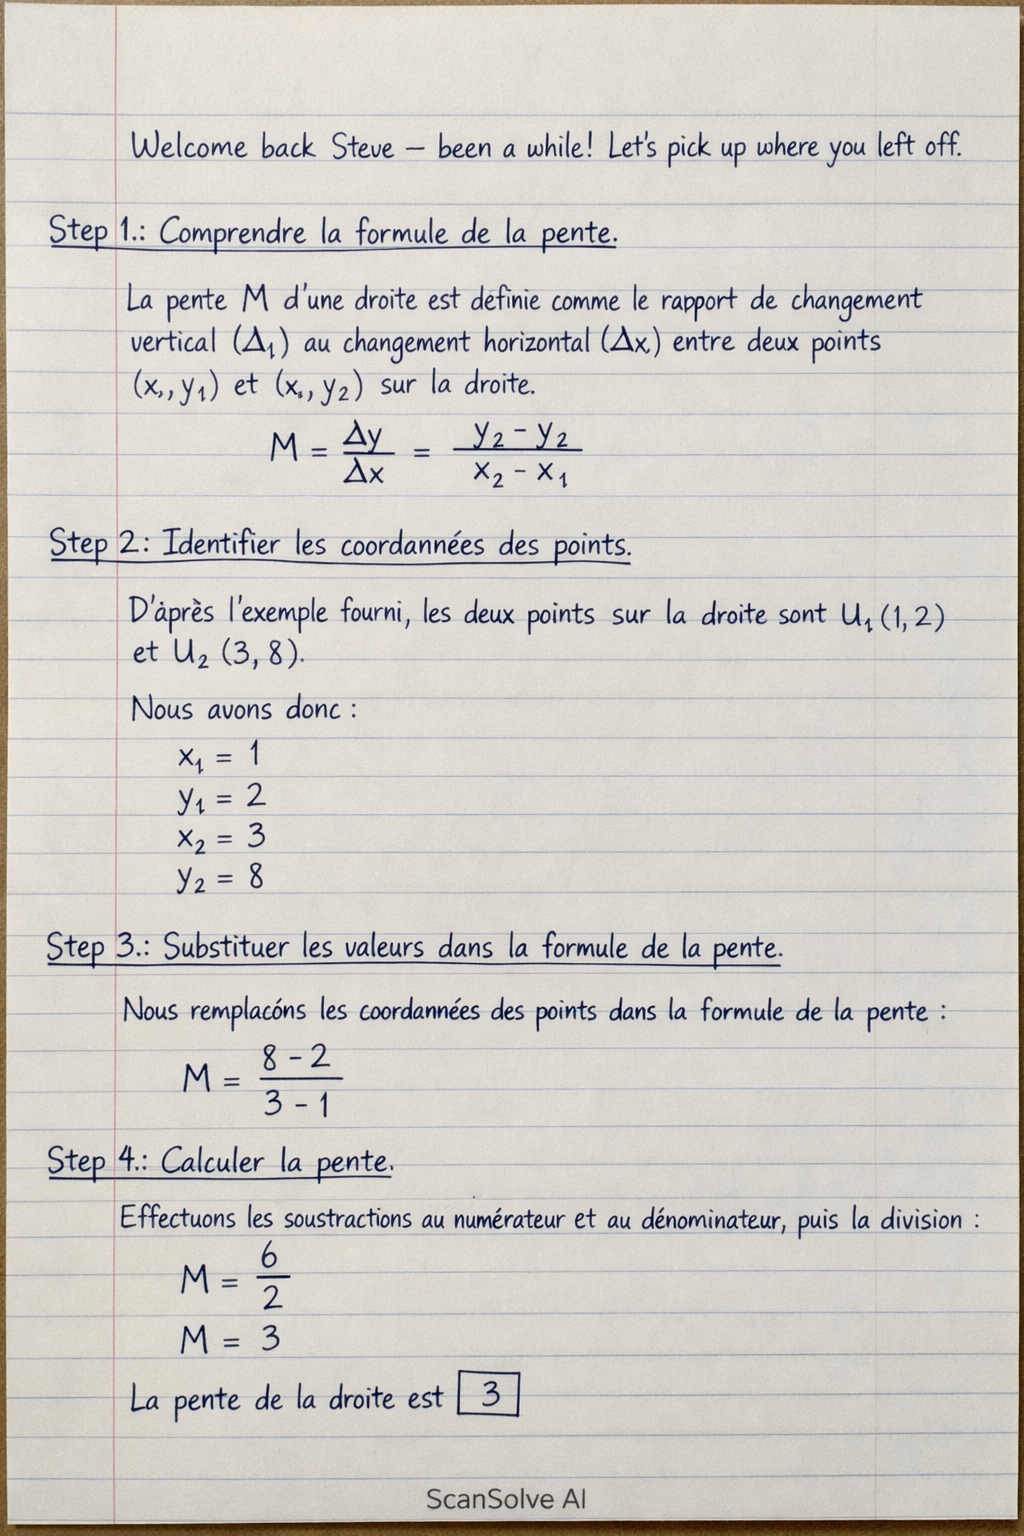 Welcome back Steve — been a while! Let's pick up where you left off.
Step 1.: Comprendre la formule de la pente.
La pente M d'une droite est définie comme le rapport de changement
vertical (Δ₁) au changement horizontal (Δx) entre deux points
(x,, y₁) et (x., y₂) sur la droite.
M = Δy/Δx = (y₂ - y₂)/(x₂ - x₁)
Step 2: Identifier les coordannées des points.
D'áprès l'exemple fourni, les deux points sur la droite sont U₁ (1, 2)
et U₂ (3, 8).
Nous avons donc :
x₁ = 1
y₁ = 2
x₂ = 3
y₂ = 8
Step 3.: Substituer les valeurs dans la formule de la pente.
Nous remplacóns les coordannées des points dans la formule de la pente :
M = (8 - 2)/(3 - 1)
Step 4.: Calculer la pente.
Effectuons les soustractions au numérateur et au dénominateur, puis la division :
M = 6/2
M = 3
La pente de la droite est 3
ScanSolve AI